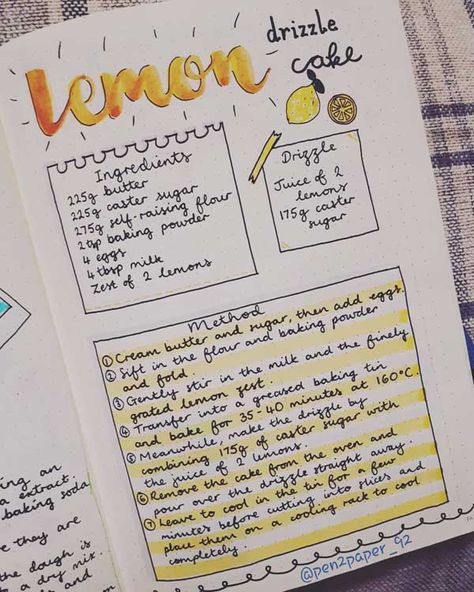 lemon drizzle
cake
Ingredients
225g butter
225g caster sugar
275g self-raising flour
2tsp baking powder
4 eggs
4 tbsp milk
Zest of 2 lemons
Drizzle
Juice of 2
lemons
175g caster
sugar
Method
① Cream butter and sugar, then add eggs
② Sift in the flour and baking powder
and fold.
③ Gently stir in the milk and the finely
grated lemon zest.
④ Transfer into a greased baking tin
and bake for 35-40 minutes at 160°C.
⑤ Meanwhile, make the drizzle by
combining 175g of caster sugar with
the juice of 2 lemons.
⑥ Remove the cake from the oven and
pour over the drizzle straight away.
⑦ Leave to cool in the tin for a few
minutes before cutting into slices and
place them on a cooling rack to cool
completely.
@pen2paper_92
an
extract.
baking soda
they are
the dough is
a dry mix.
and